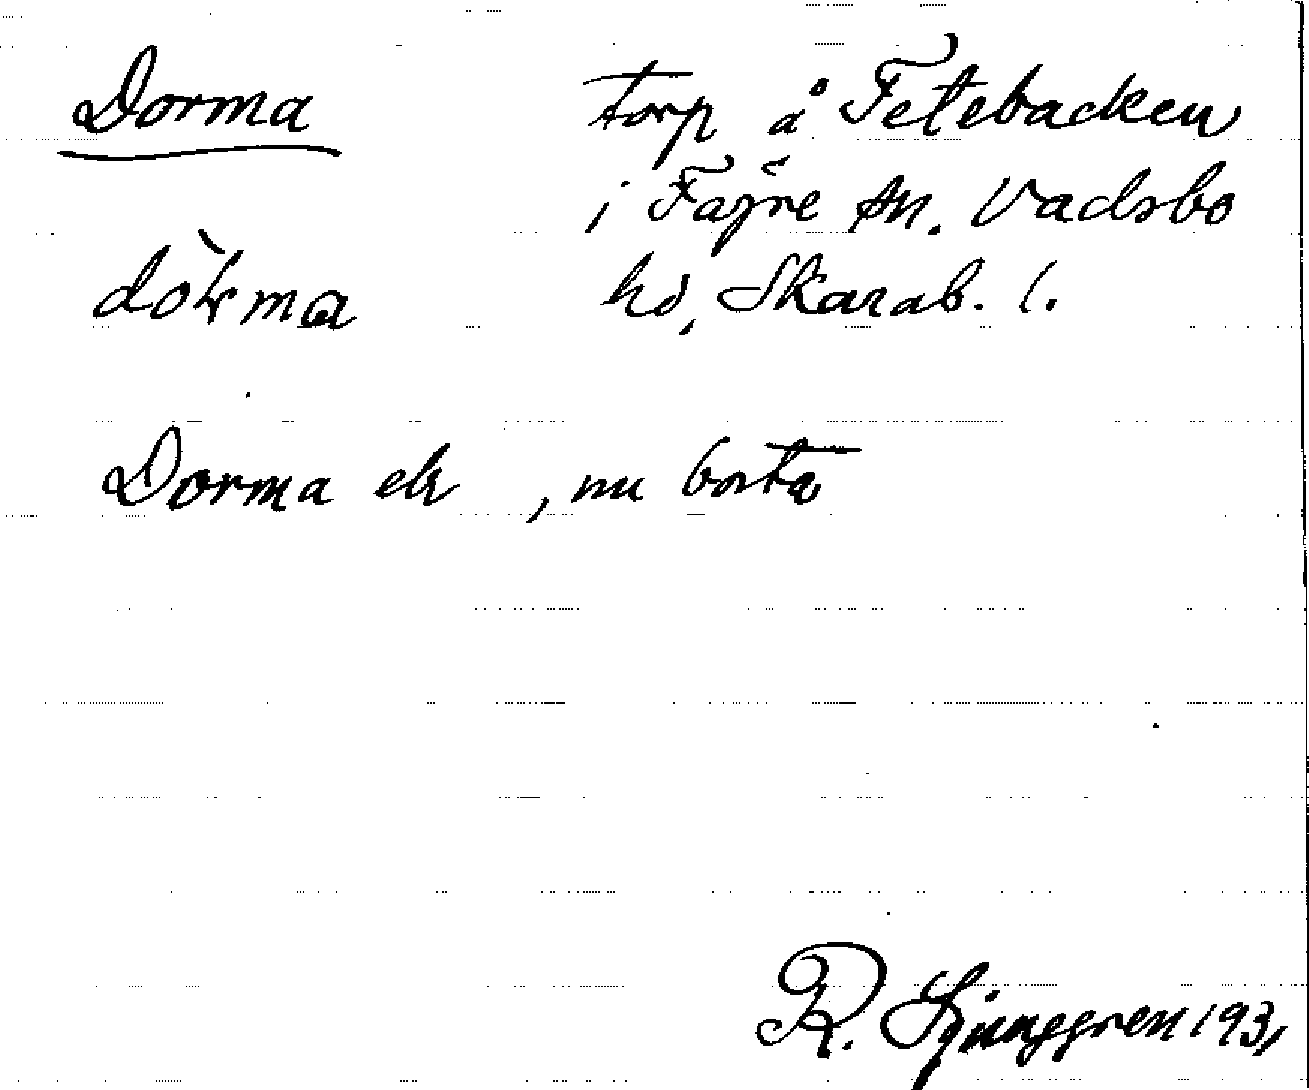 Dorma torp å Fetebacken
i Fägre sn. Vadsbo
dòrma hd, Skarab. l.
Dorma ek , nu borta
R. Ljunggren 1931